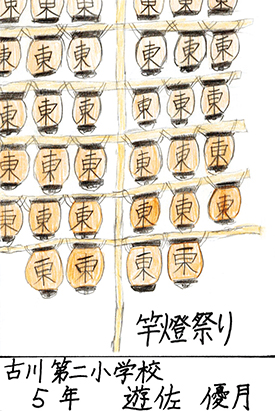 東 東 東 東 東 東
東 東 東 東 東 東
東 東 東 東 東 東
東 東 東 東 東 東
東 東 東 東 東 東
東 東 東 東
竿燈祭り
古川第二小学校
5年 遊佐 優月